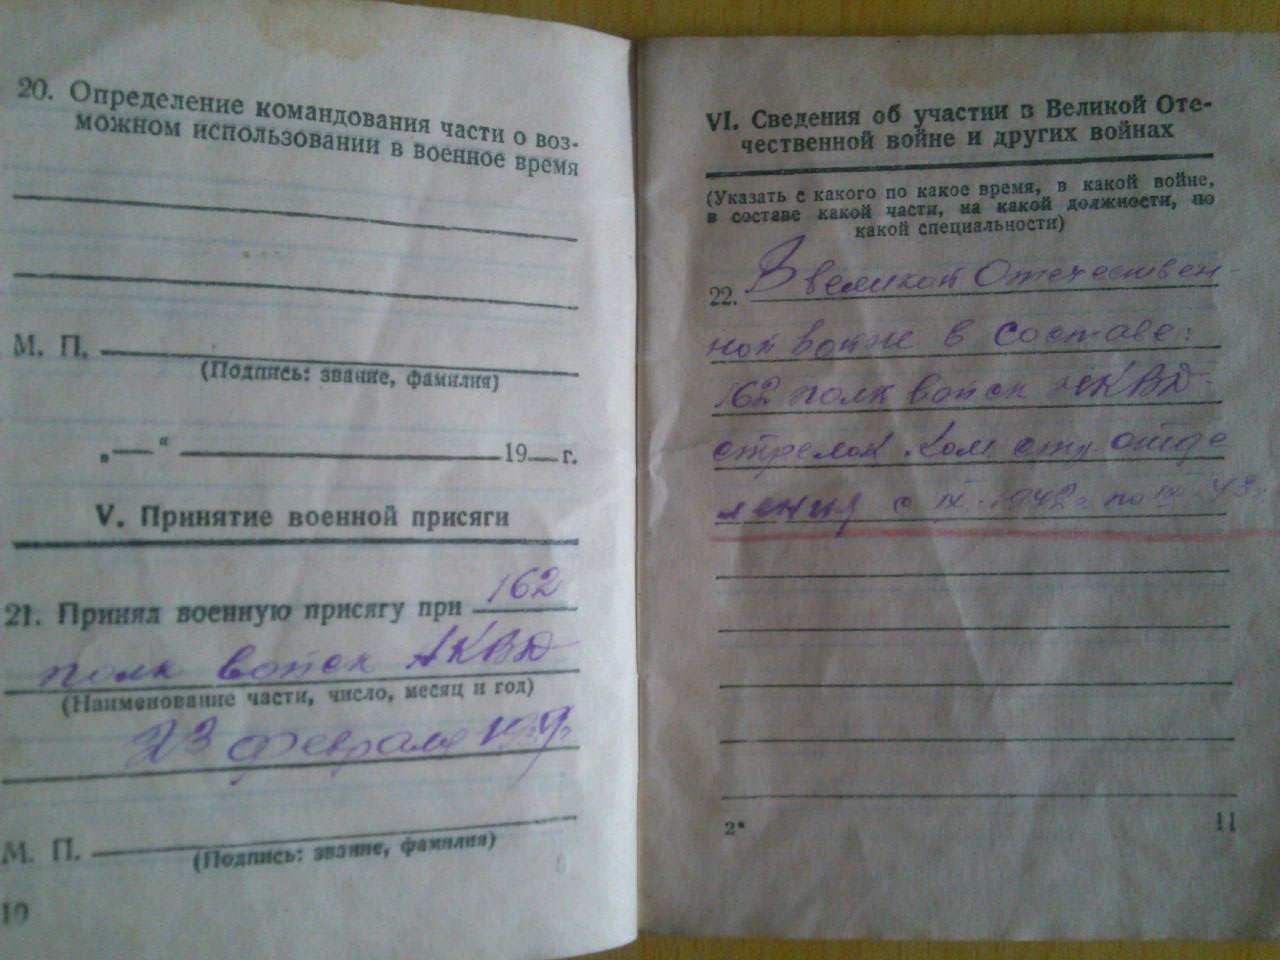 20. Определение командования части о воз-
можном использовании в военное время
М. П.
(Подпись: звание, фамилия)
„ — “ 19 — г.
V. Принятие военной присяги
21. Принял военную присягу при 162
полк войск НКВД
(Наименование части, число, месяц и год)
23 февраля 1939г.
М. П.
(Подпись: звание, фамилия)
10
VI. Сведения об участии в Великой Оте-
чественной войне и других войнах
(Указать с какого по какое время, в какой войне,
в составе какой части, на какой должности, по
какой специальности)
22. В великой Отечествен-
ной войне в составе:
162 полк войск НКВД-
стрелок. Ком. отделе
ления с IX-1942г. по IX-43г.
2*
11